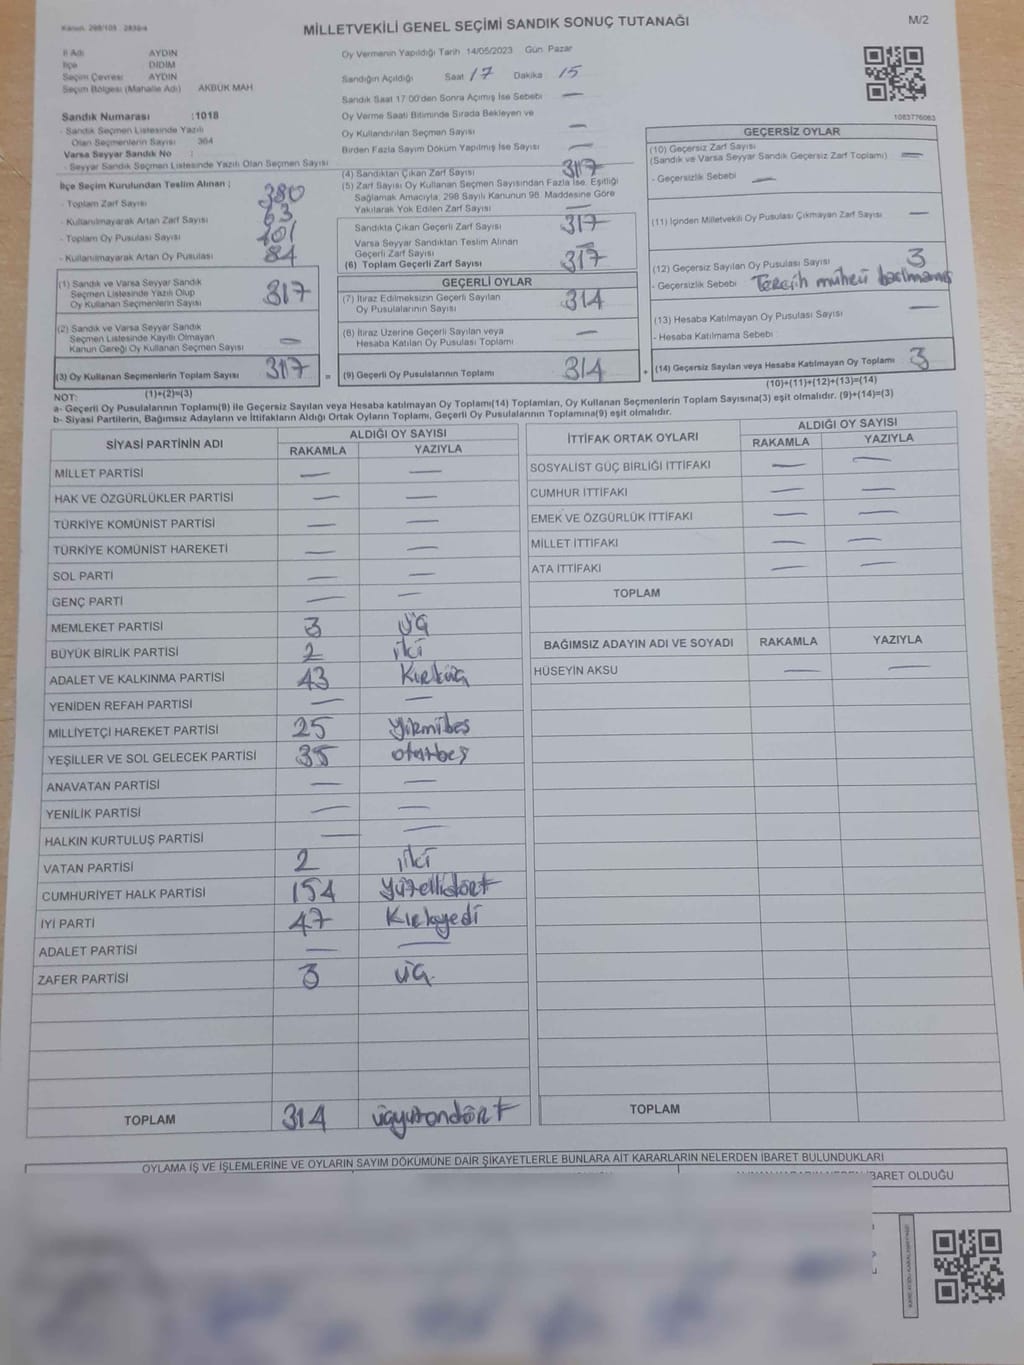 MİLLETVEKİLİ GENEL SEÇİMİ SANDIK SONUÇ TUTANAĞI
M/2
İl Adı AYDIN
İlçe DİDİM
Seçim Çevresi AYDIN
Seçim Bölgesi (Mahalle Adı) AKBÜK MAH
Sandık Numarası : 1018
- Sandık Seçmen Listesinde Yazılı
Olan Seçmenlerin Sayısı 364
Varsa Seyyar Sandık No :
- Seyyar Sandık Seçmen Listesinde Yazılı Olan Seçmen Sayısı
İlçe Seçim Kurulundan Teslim Alınan ;
- Toplam Zarf Sayısı 380
- Kullanılmayarak Artan Zarf Sayısı 63
- Toplam Oy Pusulası Sayısı 401
- Kullanılmayarak Artan Oy Pusulası 84
(1) Sandık ve Varsa Seyyar Sandık
Seçmen Listesinde Yazılı Olup
Oy Kullanan Seçmenlerin Sayısı 317
(2) Sandık ve Varsa Seyyar Sandık
Seçmen Listesinde Kayıtlı Olmayan
Kanun Gereği Oy Kullanan Seçmen Sayısı —
(3) Oy Kullanan Seçmenlerin Toplam Sayısı 317 =
(1)+(2)=(3)
Oy Vermenin Yapıldığı Tarih 14/05/2023 Gün Pazar
Sandığın Açıldığı Saat 17 Dakika 15
Sandık Saat 17:00'den Sonra Açılmış İse Sebebi —
Oy Verme Saati Bitiminde Sırada Bekleyen ve
Oy Kullandırılan Seçmen Sayısı —
Birden Fazla Sayım Döküm Yapılmış İse Sayısı —
(4) Sandıktan Çıkan Zarf Sayısı 317
(5) Zarf Sayısı Oy Kullanan Seçmen Sayısından Fazla İse, Eşitliği
Sağlamak Amacıyla, 298 Sayılı Kanunun 98. Maddesine Göre
Yakılarak Yok Edilen Zarf Sayısı —
Sandıkta Çıkan Geçerli Zarf Sayısı 317
Varsa Seyyar Sandıktan Teslim Alınan
Geçerli Zarf Sayısı —
(6) Toplam Geçerli Zarf Sayısı 317
GEÇERLİ OYLAR
(7) İtiraz Edilmeksizin Geçerli Sayılan
Oy Pusulalarının Sayısı 314
(8) İtiraz Üzerine Geçerli Sayılan veya
Hesaba Katılan Oy Pusulası Toplamı —
(9) Geçerli Oy Pusulalarının Toplamı 314 +
1083776063
GEÇERSİZ OYLAR
(10) Geçersiz Zarf Sayısı
(Sandık ve Varsa Seyyar Sandık Geçersiz Zarf Toplamı) —
- Geçersizlik Sebebi —
(11) İçinden Milletvekili Oy Pusulası Çıkmayan Zarf Sayısı —
(12) Geçersiz Sayılan Oy Pusulası Sayısı 3
- Geçersizlik Sebebi Tercih mührü basılmamış
(13) Hesaba Katılmayan Oy Pusulası Sayısı —
- Hesaba Katılmama Sebebi
(14) Geçersiz Sayılan veya Hesaba Katılmayan Oy Toplamı 3
(10)+(11)+(12)+(13)=(14)
NOT:
a- Geçerli Oy Pusulalarının Toplamı(9) ile Geçersiz Sayılan veya Hesaba katılmayan Oy Toplamı(14) Toplamları, Oy Kullanan Seçmenlerin Toplam Sayısına(3) eşit olmalıdır. (9)+(14)=(3)
b- Siyasi Partilerin, Bağımsız Adayların ve İttifakların Aldığı Ortak Oyların Toplamı, Geçerli Oy Pusulalarının Toplamına(9) eşit olmalıdır.
SİYASİ PARTİNİN ADI ALDIĞI OY SAYISI
RAKAMLA YAZIYLA
MİLLET PARTİSİ — —
HAK VE ÖZGÜRLÜKLER PARTİSİ — —
TÜRKİYE KOMÜNİST PARTİSİ — —
TÜRKİYE KOMÜNİST HAREKETİ — —
SOL PARTİ — —
GENÇ PARTİ — —
MEMLEKET PARTİSİ 3 üç
BÜYÜK BİRLİK PARTİSİ 2 iki
ADALET VE KALKINMA PARTİSİ 43 Kırküç
YENİDEN REFAH PARTİSİ — —
MİLLİYETÇİ HAREKET PARTİSİ 25 yirmibeş
YEŞİLLER VE SOL GELECEK PARTİSİ 35 otuzbeş
ANAVATAN PARTİSİ — —
YENİLİK PARTİSİ — —
HALKIN KURTULUŞ PARTİSİ — —
VATAN PARTİSİ 2 iki
CUMHURİYET HALK PARTİSİ 154 yüzellidört
İYİ PARTİ 47 Kırkyedi
ADALET PARTİSİ — —
ZAFER PARTİSİ 3 üç.
TOPLAM 314 üçyüzondört
İTTİFAK ORTAK OYLARI ALDIĞI OY SAYISI
RAKAMLA YAZIYLA
SOSYALİST GÜÇ BİRLİĞİ İTTİFAKI — —
CUMHUR İTTİFAKI — —
EMEK VE ÖZGÜRLÜK İTTİFAKI — —
MİLLET İTTİFAKI — —
ATA İTTİFAKI — —
TOPLAM
BAĞIMSIZ ADAYIN ADI VE SOYADI RAKAMLA YAZIYLA
HÜSEYİN AKSU — —
TOPLAM
OYLAMA İŞ VE İŞLEMLERİNE VE OYLARIN SAYIM DÖKÜMÜNE DAİR ŞİKAYETLERLE BUNLARA AİT KARARLARIN NELERDEN İBARET BULUNDUKLARI
İBARET OLDUĞU